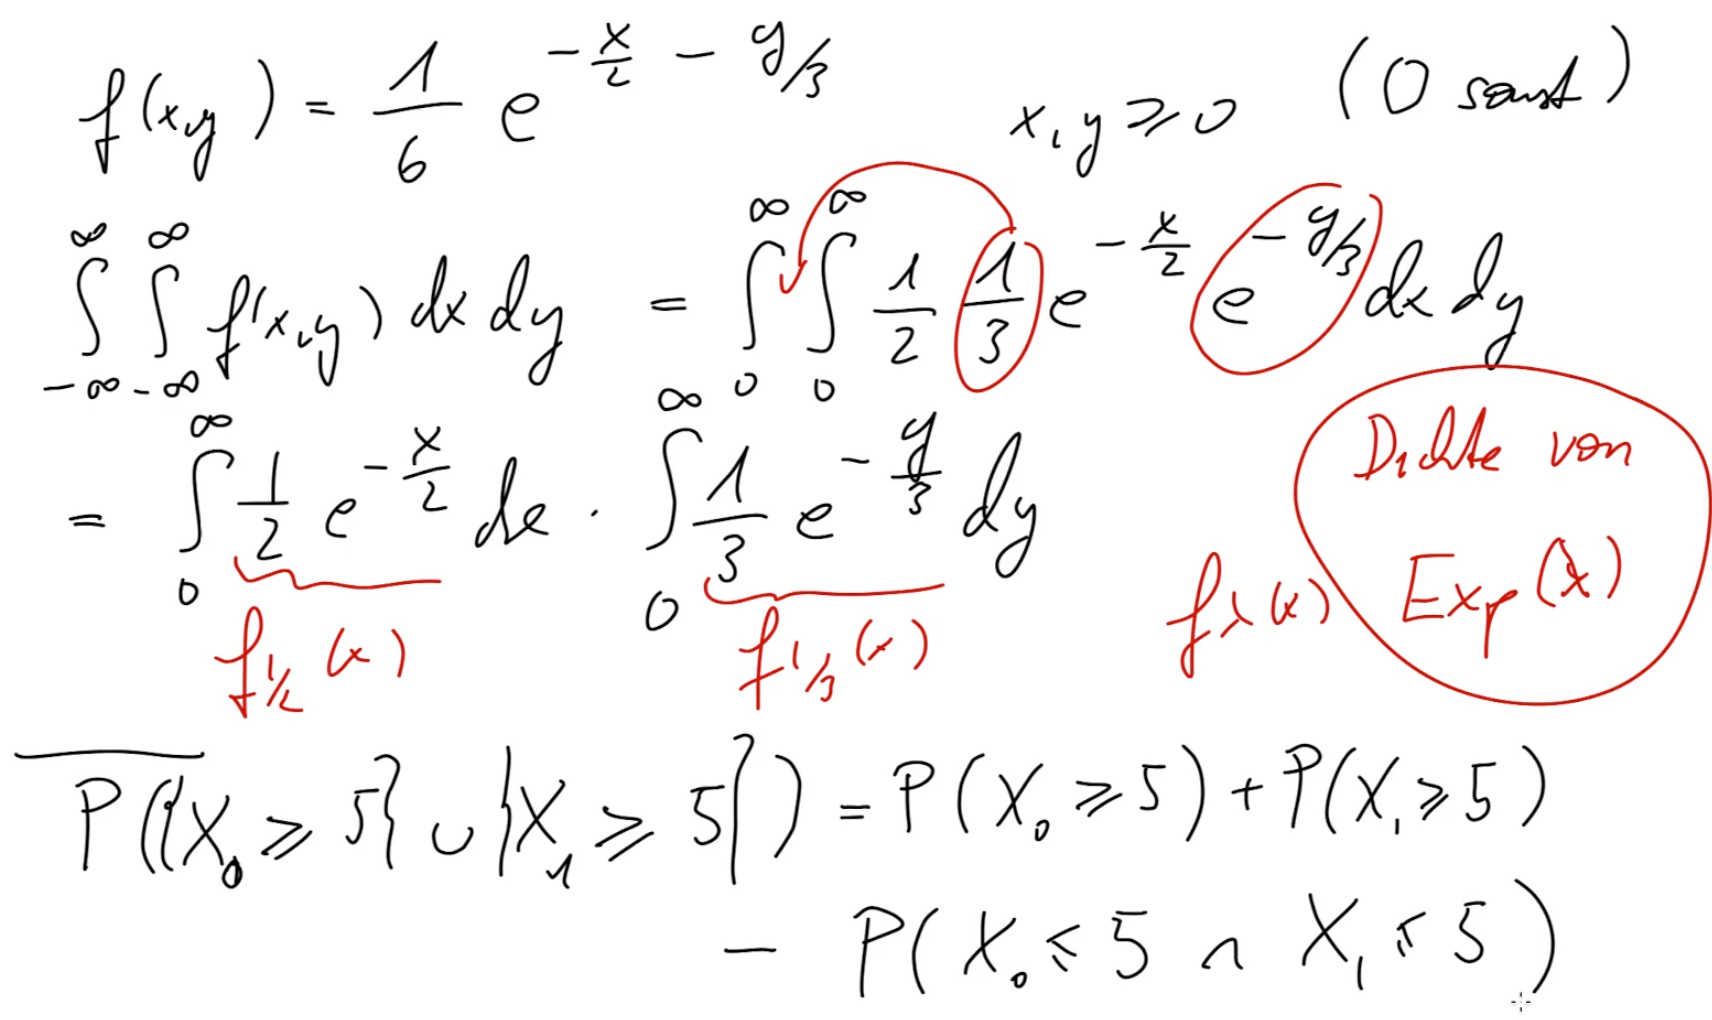 f(x,y) = 1/6 e^(-x/2 - y/3) x, y ≥ 0 (0 sonst)
∫_{-∞}^{∞} ∫_{-∞}^{∞} f(x,y) dx dy = ∫_0^∞ ∫_0^∞ 1/2 1/3 e^(-x/2) e^(-y/3) dx dy
= ∫_0^∞ 1/2 e^(-x/2) dx · ∫_0^∞ 1/3 e^(-y/3) dy
f_{1/2}(x) f_{1/3}(x) f_λ(x) Dichte von Exp(λ)
P({X_0 ≥ 5} ∪ {X_1 ≥ 5}) = P(X_0 ≥ 5) + P(X_1 ≥ 5)
- P(X_0 ≤ 5 ∩ X_1 ≤ 5)